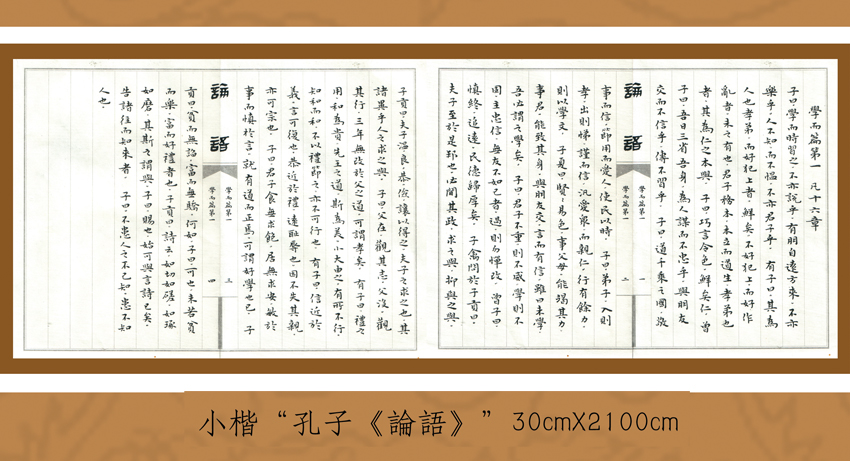 學而篇第一 凡十六章
子曰.學而時習之.不亦說乎.有朋自遠方來.不亦
樂乎.人不知而不慍.不亦君子乎. 有子曰.其為
人也孝弟.而好犯上者.鮮矣.不好犯上.而好作
亂者.未之有也.君子務本.本立而道生.孝弟也
者.其為仁之本與. 子曰.巧言令色.鮮矣仁. 曾
子曰.吾日三省吾身.為人謀而不忠乎.與朋友
交而不信乎.傳不習乎. 子曰.道千乘之國.敬
論語
學而篇第一 一
學而篇第一 二
事而信.節用而愛人.使民以時. 子曰.弟子.入則
孝.出則悌.謹而信.汎愛眾.而親仁.行有餘力.
則以學文. 子夏曰.賢賢易色.事父母.能竭其力.
事君.能致其身.與朋友交.言而有信.雖曰未學.
吾必謂之學矣. 子曰.君子不重則不威.學則不
固.主忠信.無友不如己者.過.則勿憚改. 曾子曰.
慎終追遠.民德歸厚矣. 子禽問於子貢曰.
夫子至於是邦也.必聞其政.求之與.抑與之與.
子貢曰.夫子溫良恭儉讓以得之.夫子之求之也.其
諸異乎人之求之與. 子曰.父在.觀其志.父沒.觀
其行.三年無改於父之道.可謂孝矣. 有子曰.禮之
用.和為貴.先王之道.斯為美.小大由之.有所不行.
知和而和.不以禮節之.亦不可行也. 有子曰.信近於
義.言可復也.恭近於禮.遠恥辱也.因不失其親.
亦可宗也. 子曰.君子食無求飽.居無求安.敏於
事而慎於言.就有道而正焉.可謂好學也已. 子
論語
學而篇第一 三
學而篇第一 四
貢曰.貧而無諂.富而無驕.何如.子曰.可也.未若貧
而樂.富而好禮者也.子貢曰.詩云.如切如磋.如琢
如磨.其斯之謂與.子曰.賜也.始可與言詩已矣.
告諸往而知來者. 子曰.不患人之不己知.患不知
人也.
小楷“孔子《論語》”30cmX2100cm